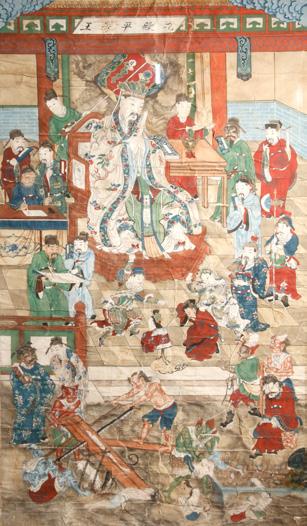 九殿平等王